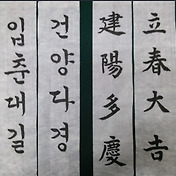 立春大吉
建陽多慶
건양다경
입춘대길